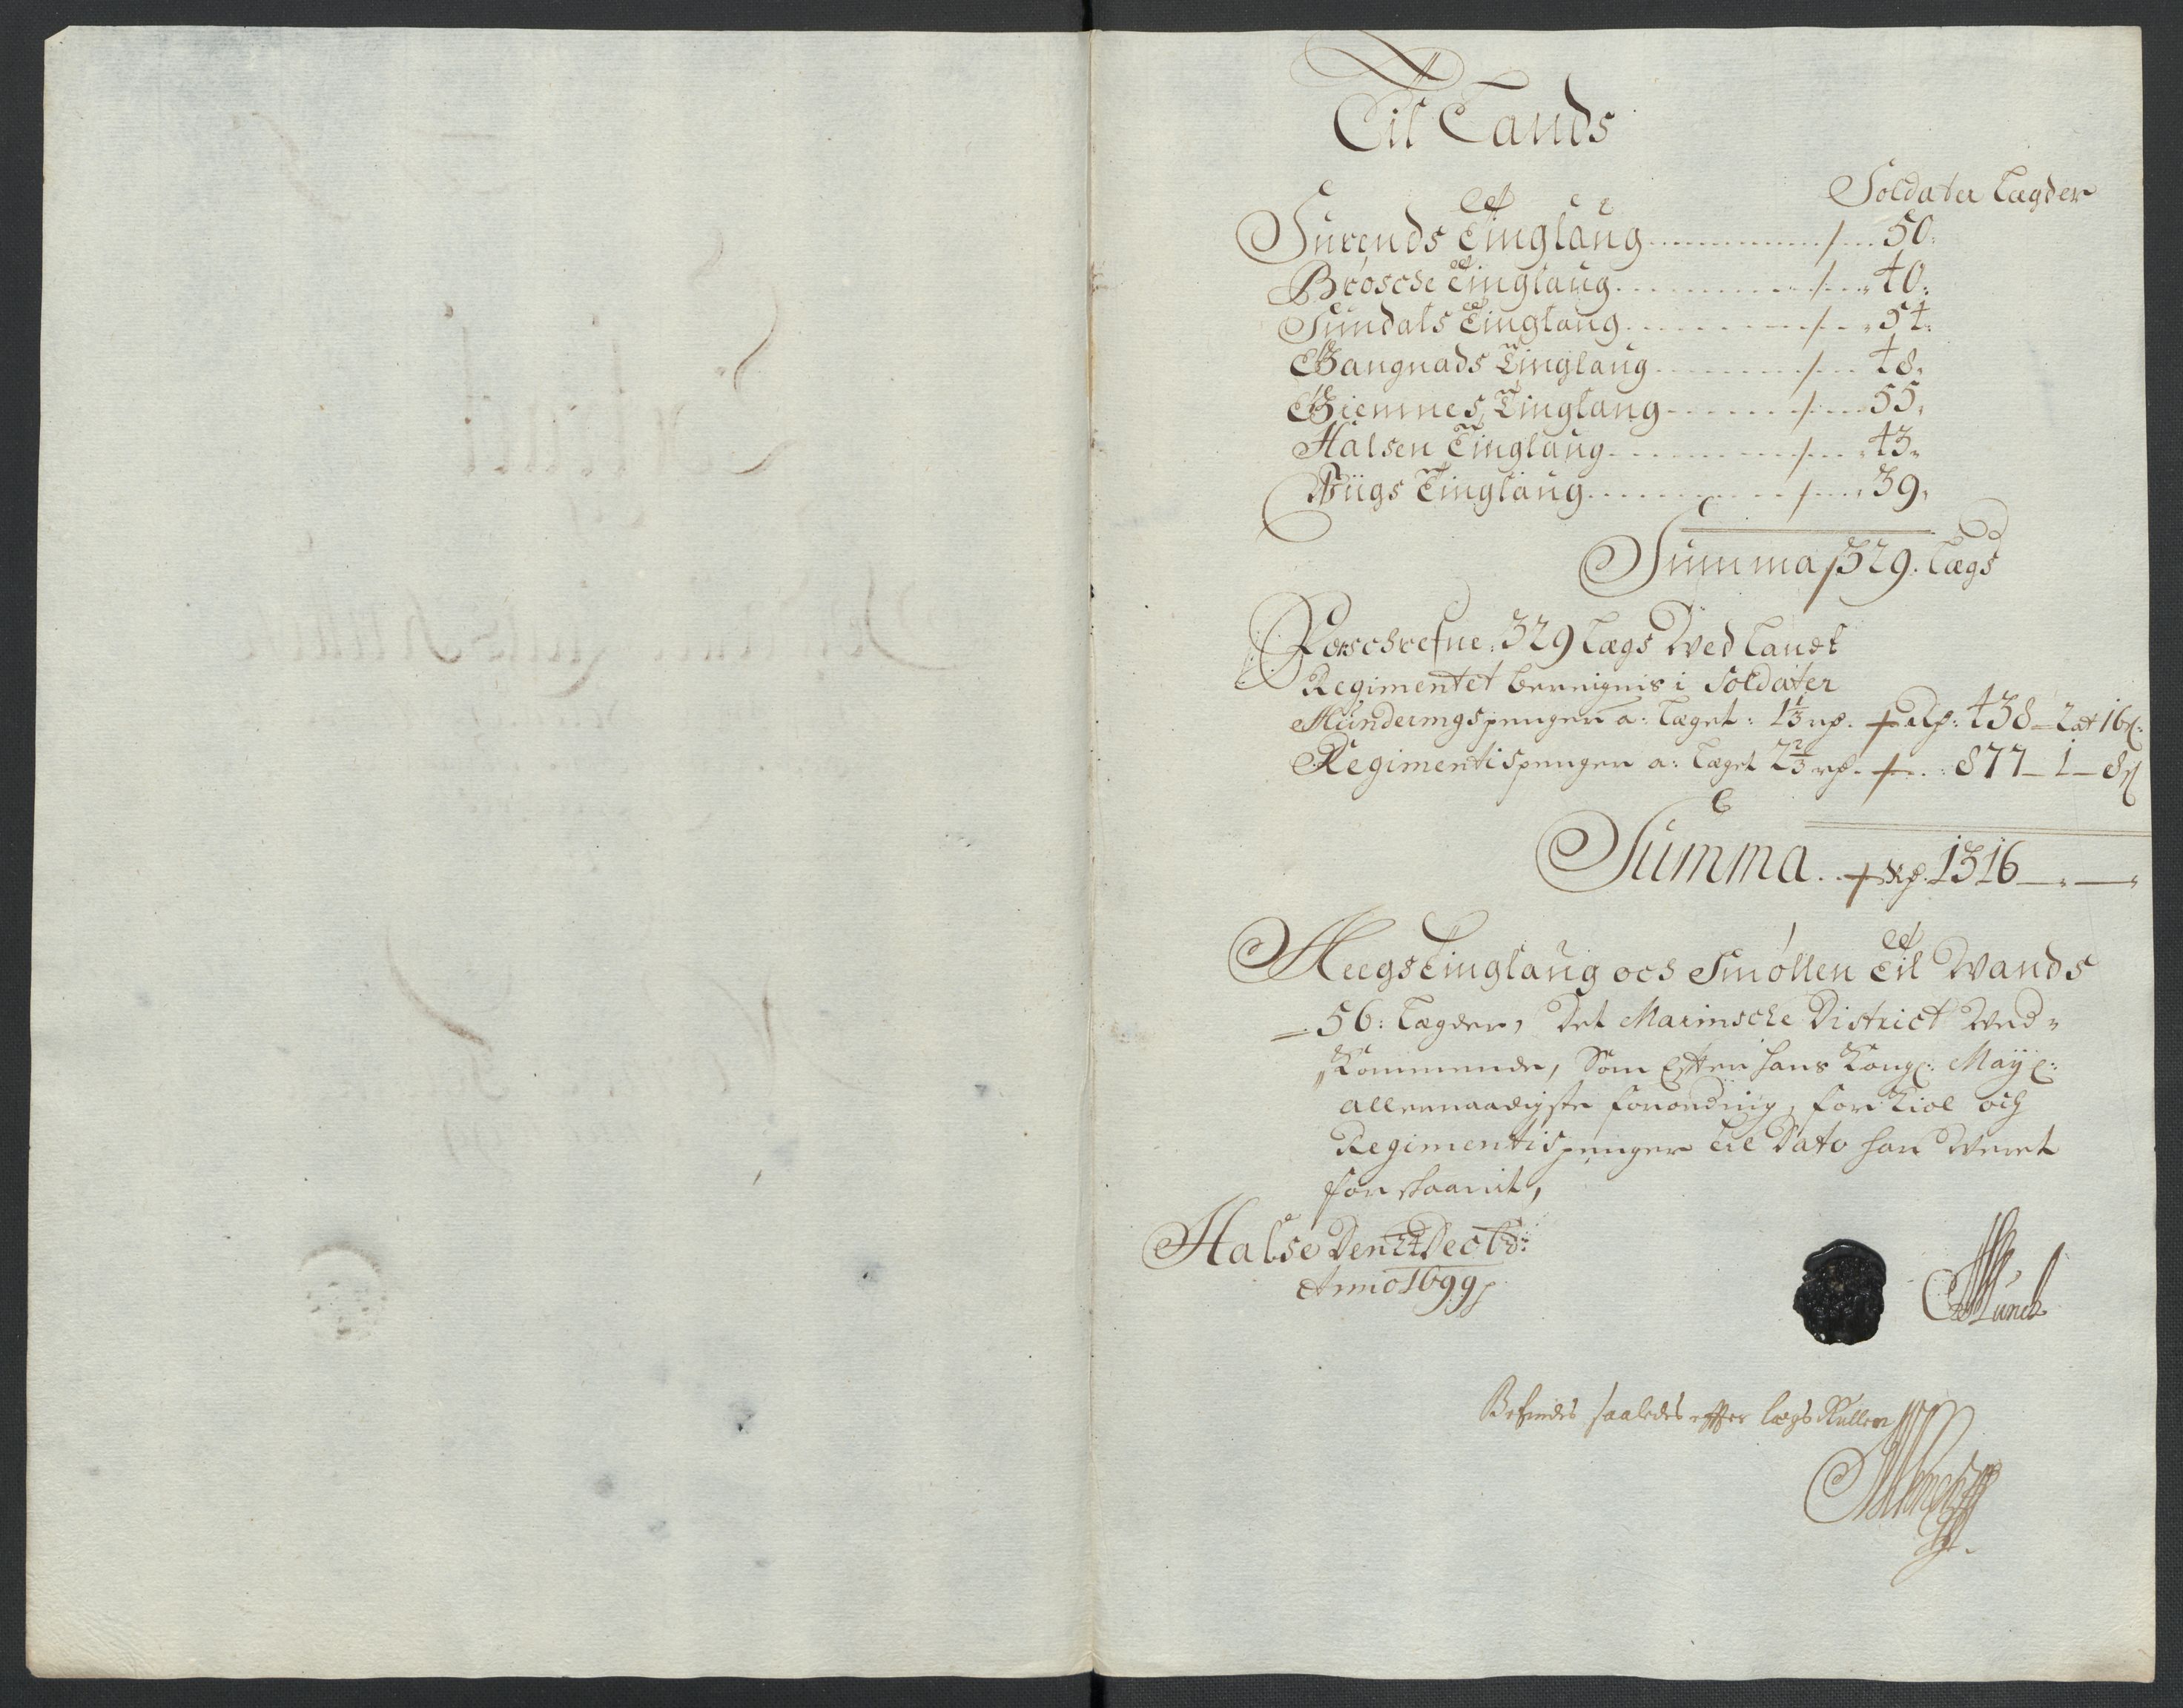 Til Lands
Soldater Lægder
Surends Tinglaug 50:
Brøsche Tinglaug 40:
Sundals Tinglaug 54:
Gangnads Tinglaug 48,
Giemnes Tinglaug 55,
Halsen Tinglaug 43,
Wiigs Tinglaug 39,
Summa 329. Lægs
Forschrefne: 329 Lægs Ved Landt
Regimentet bereignis i Soldater
Munderingspenger a: Læget: 1 1/3 rd. Rd: 438 - 2 ort 16 s:
Regimentispenger a: Læget 2 2/3 rd. 877 - 1 - 8 s
Summa Rd. 1316 - -
Tinglaug och Smøllen Til Wands
56: Lægder, Det Marinsche District Ved=
Kommende, Som Efter hans Kongl: May e:
allernaadigste forordning, for Kiol och
Regimentispenger til Dato har Veret
forskaanit,
Halse Den 24 Decbr:
Anno 1699
Munch
Befindes saaledes effter lægs Rullen